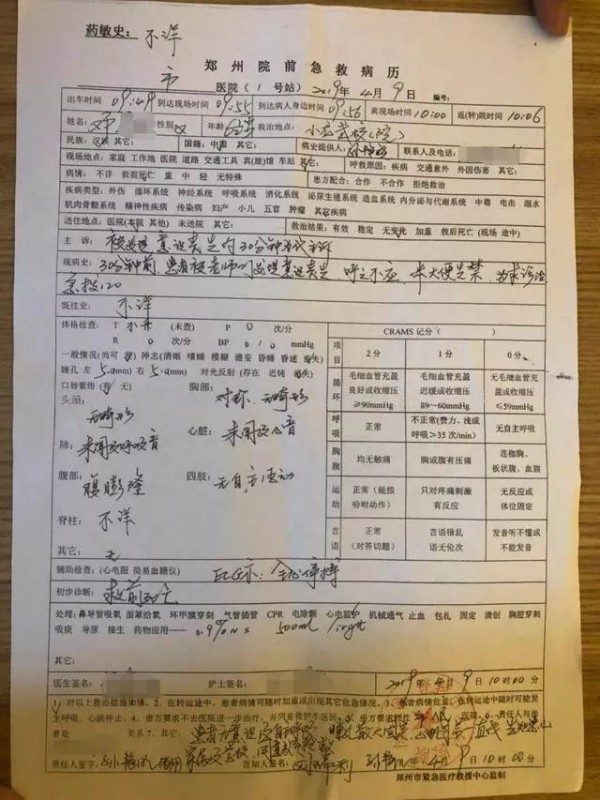 药敏史：不详
郑州院前急救病历
市 医院（1号站）2019年4月9日 编号：
出车时间 09:49 到达现场时间 09:55 到达病人身边时间 09:56 离现场时间 10:00 返(转)院时间 10:06
姓名 性别 女 年龄 救治地点：小龙武校(院)
民族：汉 其它： 国籍：中国 其它： 病史提供人： 联系人及电话：
现场地点：家庭 工作地 医院 道路 交通工具 宾(旅)馆 车站 其它： 呼救原因：疾病 交通意外 外因伤害 其它：
病情：不详 救前死亡 重 中 轻 无特殊 患方配合：合作 不合作 拒绝救治
疾病类型：外伤 循环系统 神经系统 呼吸系统 消化系统 泌尿生殖系统 造血系统 内分泌与代谢系统 中毒 电击 溺水
肌肉骨骼系统 精神性疾病 传染病 妇产 小儿 五官 肿瘤 其它疾病
送往地点：医院(本院 其他) 未送院 其它： 救治结果：有效 稳定 无变化 加重 救后死亡(现场 途中)
主诉：被发现意识丧失约30分钟
现病史：30分钟前，患者被老师们发现意识丧失 呼之不应，伴大便失禁，为求诊治
急拨120
既往史：不详
体格检查：T 不升（未查） P 0 次/分
R 0 次/分 BP 0/0 mmHg
一般情况(尚可 差) 神志(清晰 嗜睡 模糊 谵妄 昏睡 昏迷 消失)
瞳孔 左5.0(mm) 右5.0(mm) 对光反射(存在 迟钝 消失)
口唇紫绀(有 无) 胸部：对称，无畸形
头颈：无畸形
肺：未闻及呼吸音 心脏：未闻及心音
腹部：腹膨隆 四肢：无自主活动
脊柱：不详
其它：无
CRAMS记分（ ）
项目 2分 1分 0分
循环 毛细血管充盈良好或收缩压≥90mmHg 毛细血管充盈迟缓或收缩压89~60mmHg 无毛细血管充盈或收缩压≤59mmHg
呼吸 正常 不正常(费力、浅或呼吸>35次/min) 无自主呼吸
胸腹 均无触痛 胸或腹有压痛 连枷胸、板状腹、血腹
运动 正常（能按吩咐动作） 只对疼痛刺激有反应 无反应或体位固定
言语 正常（对答切题） 言语错乱语无伦次 发音听不懂或不能发音
辅助检查：（心电图 简易血糖仪） ECG示：全心停搏
初步诊断：救前死亡
处理：鼻导管吸氧 面罩给氧 环甲膜穿刺 气管插管 CPR 电除颤 心电监护 机械通气 止血 包扎 固定 清创 胸腔穿刺
吸痰 导尿 接生 药物应用— 0.9%NS 500ml ivgtt
其它：
医生签名： 护士签名： 2019年4月9日10时00分
1、对以上救治措施知情。2、在转运途中，患者病情可随时加重或出现其它危急情况。3、患者病情危重，在转运途中随时可能发
生呼吸、心跳停止。4、患方要求不去医院进一步治疗，并同意救护车返回。5、患方要求
关系 7、其它：
责任人签字： 告知人签名： 4月9日10时00分
郑州市紧急医疗救援中心监制